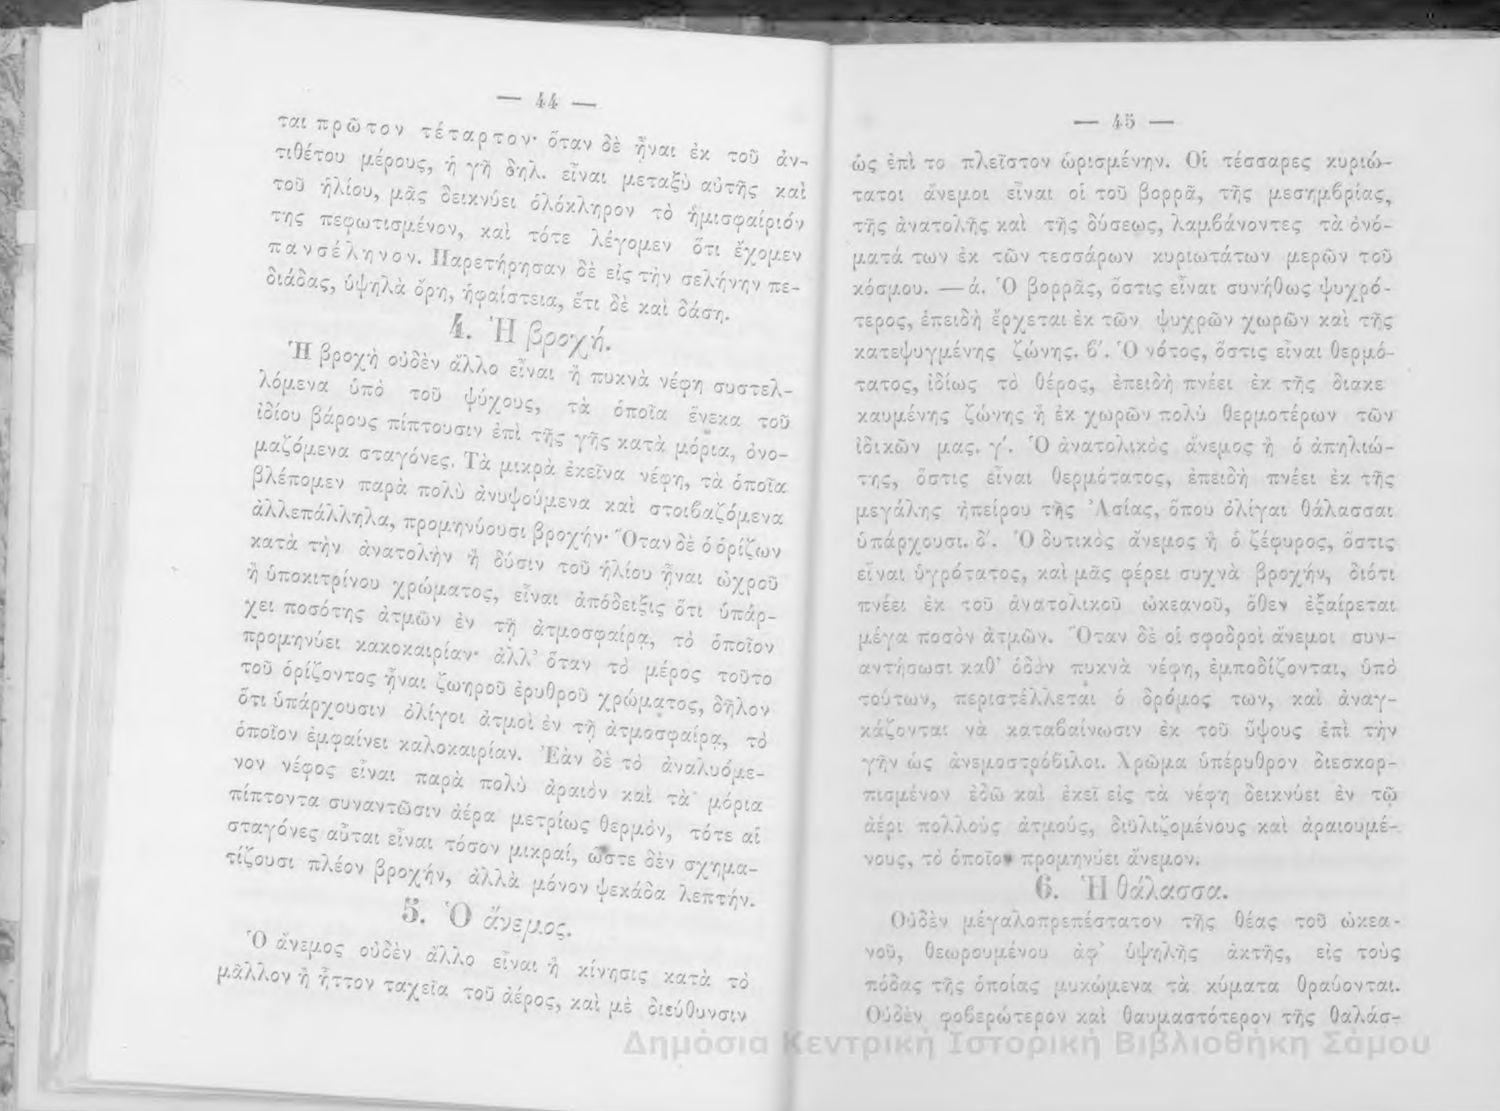 — 44 —
ται πρῶτον τέταρτον· ὅταν δὲ ᾖναι ἐκ τοῦ ἀν-
τιθέτου μέρους, ἡ γῆ δηλ. εἶναι μεταξὺ αὐτῆς καὶ
τοῦ ἡλίου, μᾶς δεικνύει ὁλόκληρον τὸ ἡμισφαίριόν
της πεφωτισμένον, καὶ τότε λέγομεν ὅτι ἔχομεν
πανσέληνον. Παρετήρησαν δὲ εἰς τὴν σελήνην πε-
διάδας, ὑψηλὰ ὄρη, ἡφαίστεια, ἔτι δὲ καὶ δάση.
4. Ἡ βροχή.
Ἡ βροχὴ οὐδὲν ἄλλο εἶναι ἢ πυκνὰ νέφη συστελ-
λόμενα ὑπὸ τοῦ ψύχους, τὰ ὁποῖα ἕνεκα τοῦ
ἰδίου βάρους πίπτουσιν ἐπὶ τῆς γῆς κατὰ μόρια, ὀνο-
μαζόμενα σταγόνες. Τὰ μικρὰ ἐκεῖνα νέφη, τὰ ὁποῖα
βλέπομεν παρὰ πολὺ ἀνυψούμενα καὶ στοιβαζόμενα
ἀλλεπάλληλα, προμηνύουσι βροχήν· Ὅταν δὲ ὁ ὁρίζων
κατὰ τὴν ἀνατολὴν ἢ δύσιν τοῦ ἡλίου ᾖναι ὠχροῦ
ἢ ὑποκιτρίνου χρώματος, εἶναι ἀπόδειξις ὅτι ὑπάρ-
χει ποσότης ἀτμῶν ἐν τῇ ἀτμοσφαίρᾳ, τὸ ὁποῖον
προμηνύει κακοκαιρίαν· ἀλλ' ὅταν τὸ μέρος τοῦτο
τοῦ ὁρίζοντος ᾖναι ζωηροῦ ἐρυθροῦ χρώματος, δῆλον
ὅτι ὑπάρχουσιν ὀλίγοι ἀτμοὶ ἐν τῇ ἀτμοσφαίρᾳ, τὸ
ὁποῖον ἐμφαίνει καλοκαιρίαν. Ἐὰν δὲ τὸ ἀναλυόμε-
νον νέφος εἶναι παρὰ πολὺ ἀραιὸν καὶ τὰ μόρια
πίπτοντα συναντῶσιν ἀέρα μετρίως θερμὸν, τότε αἱ
σταγόνες αὗται εἶναι τόσον μικραί, ὥστε δὲν σχημα-
τίζουσι πλέον βροχήν, ἀλλὰ μόνον ψεκάδα λεπτήν.
5. Ὁ ἄνεμος.
Ὁ ἄνεμος οὐδὲν ἄλλο εἶναι ἢ κίνησις κατὰ τὸ
μᾶλλον ἢ ἧττον ταχεῖα τοῦ ἀέρος, καὶ μὲ διεύθυνσιν
— 45 —
ὡς ἐπὶ το πλεῖστον ὡρισμένην. Οἱ τέσσαρες κυριώ-
τατοι ἄνεμοι εἶναι οἱ τοῦ βορρᾶ, τῆς μεσημβρίας,
τῆς ἀνατολῆς καὶ τῆς δύσεως, λαμβάνοντες τὰ ὀνό-
ματά των ἐκ τῶν τεσσάρων κυριωτάτων μερῶν τοῦ
κόσμου. — ά. Ὁ βορρᾶς, ὅστις εἶναι συνήθως ψυχρό-
τερος, ἐπειδὴ ἔρχεται ἐκ τῶν ψυχρῶν χωρῶν καὶ τῆς
κατεψυγμένης ζώνης. β'. Ὁ νότος, ὅστις εἶναι θερμό-
τατος, ἰδίως τὸ θέρος, ἐπειδὴ πνέει ἐκ τῆς διακε
καυμένης ζώνης ἢ ἐκ χωρῶν πολὺ θερμοτέρων τῶν
ἰδικῶν μας. γ'. Ὁ ἀνατολικὸς ἄνεμος ἢ ὁ ἀπηλιώ-
της, ὅστις εἶναι θερμότατος, ἐπειδὴ πνέει ἐκ τῆς
μεγάλης ἠπείρου τῆς Ἀσίας, ὅπου ὀλίγαι θάλασσαι
ὑπάρχουσι. δ'. Ὁ δυτικὸς ἄνεμος ἢ ὁ ζέφυρος, ὅστις
εἶναι ὑγρότατος, καὶ μᾶς φέρει συχνὰ βροχήν, διότι
πνέει ἐκ τοῦ ἀνατολικοῦ ὠκεανοῦ, ὅθεν ἐξαίρεται
μέγα ποσὸν ἀτμῶν. Ὅταν δὲ οἱ σφοδροὶ ἄνεμοι συν-
αντήσωσι καθ' ὁδὸν πυκνὰ νέφη, ἐμποδίζονται, ὑπὸ
τούτων, περιστέλλεται ὁ δρόμος των, καὶ ἀναγ-
κάζονται νὰ καταβαίνωσιν ἐκ τοῦ ὕψους ἐπὶ τὴν
γῆν ὡς ἀνεμοστρόβιλοι. Χρῶμα ὑπέρυθρον διεσκορ-
πισμένον ἐδῶ καὶ ἐκεῖ εἰς τὰ νέφη δεικνύει ἐν τῷ
ἀέρι πολλοὺς ἀτμούς, διϋλιζομένους καὶ ἀραιουμέ-
νους, τὸ ὁποῖον προμηνύει ἄνεμον.
6. Ἡ θάλασσα.
Οὐδὲν μεγαλοπρεπέστατον τῆς θέας τοῦ ὠκεα-
νοῦ, θεωρουμένου ἀφ' ὑψηλῆς ἀκτῆς, εἰς τοὺς
πόδας τῆς ὁποίας μυκώμενα τὰ κύματα θραύονται.
Οὐδὲν φοβερώτερον καὶ θαυμαστότερον τῆς θαλάσ-
Δημόσια Κεντρική Ιστορική Βιβλιοθήκη Σάμου